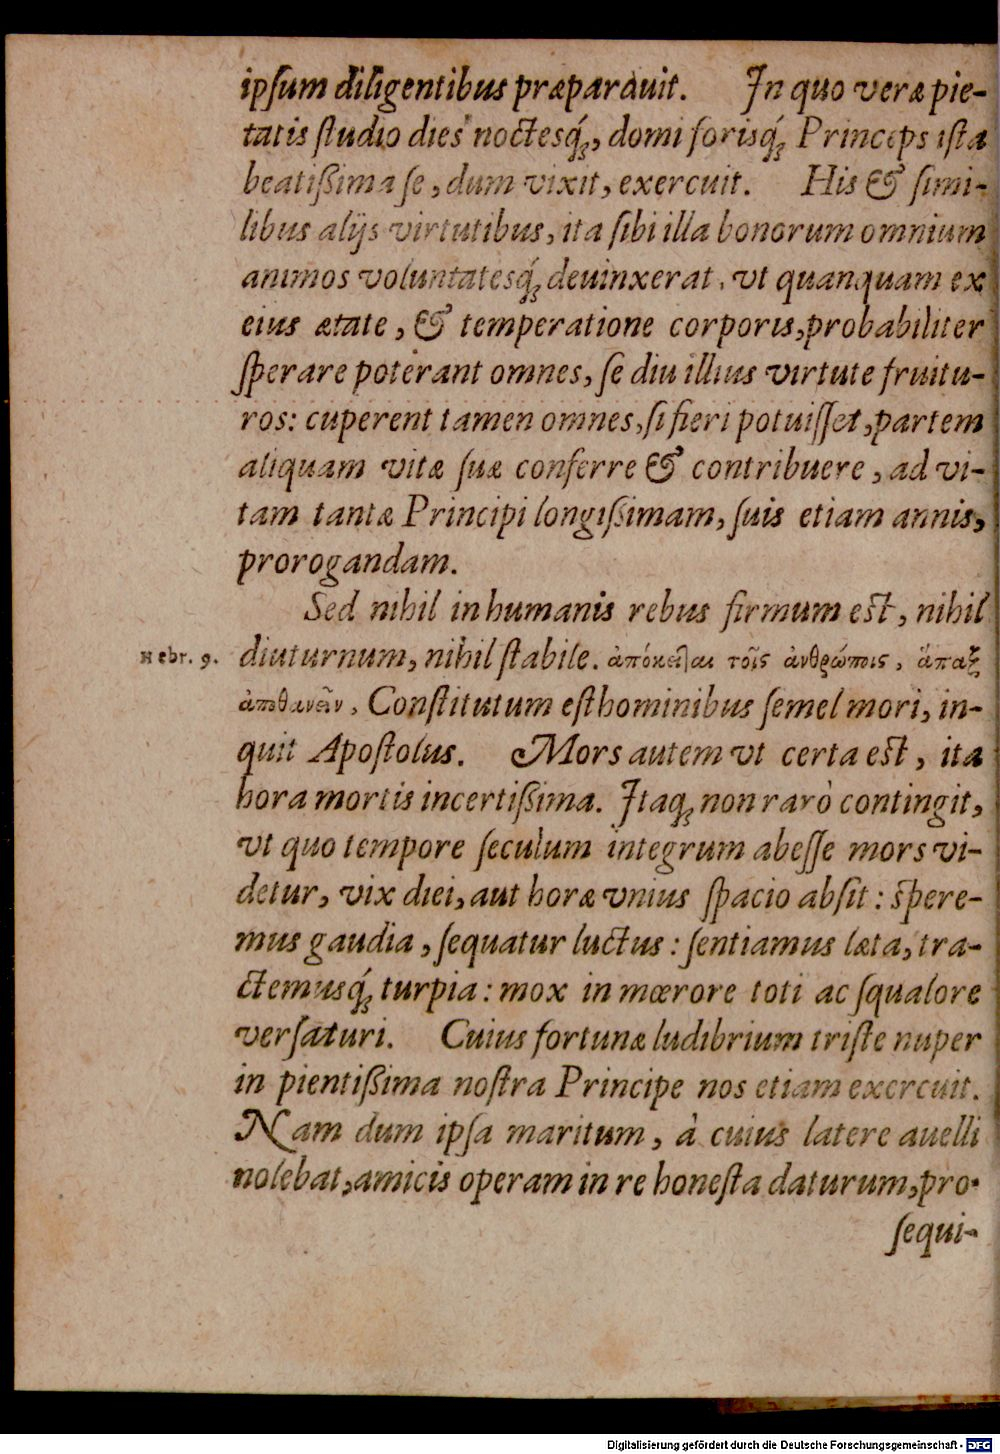 ipſum diligentibus præparauit. In quo veræ pie-
tatis ſtudio dies noctesq́ꝫ, domi forisq́ꝫ Princeps iſta
beatißima ſe, dum vixit, exercuit. His & ſimi-
libus alijs virtutibus, ita ſibi illa bonorum omnium
animos voluntatesq́ꝫ deuinxerat, vt quanquam ex
eius ætate, & temperatione corporis, probabiliter
ſperare poterant omnes, ſe diu illius virtute fruitu-
ros: cuperent tamen omnes, ſi fieri potuiſſet, partem
aliquam vitæ ſuæ conferre & contribuere, ad vi-
tam tantæ Principi longißimam, ſuis etiam annis,
prorogandam.
Sed nihil in humanis rebus firmum eſt, nihil
Hebr. 9. diuturnum, nihil ſtabile. ἀπόκειται τοῖς ἀνθρώποις, ἅπαξ
ἀποθανεῖν, Conſtitutum eſt hominibus ſemel mori, in-
quit Apoſtolus. Mors autem vt certa eſt, ita
hora mortis incertißima. Itaqꝫ non rarò contingit,
vt quo tempore ſeculum integrum abeſſe mors vi-
detur, vix diei, aut horæ vnius ſpacio abſit: ſpere-
mus gaudia, ſequatur luctus: ſentiamus læta, tra-
ctemusq́ꝫ turpia: mox in mœrore toti ac ſqualore
verſaturi. Cuius fortunæ ludibrium triſte nuper
in pientißima noſtra Principe nos etiam exercuit.
Nam dum ipſa maritum, à cuius latere auelli
nolebat, amicis operam in re honeſta daturum, pro-
ſequi-
Digitalisierung gefördert durch die Deutsche Forschungsgemeinschaft - DFG